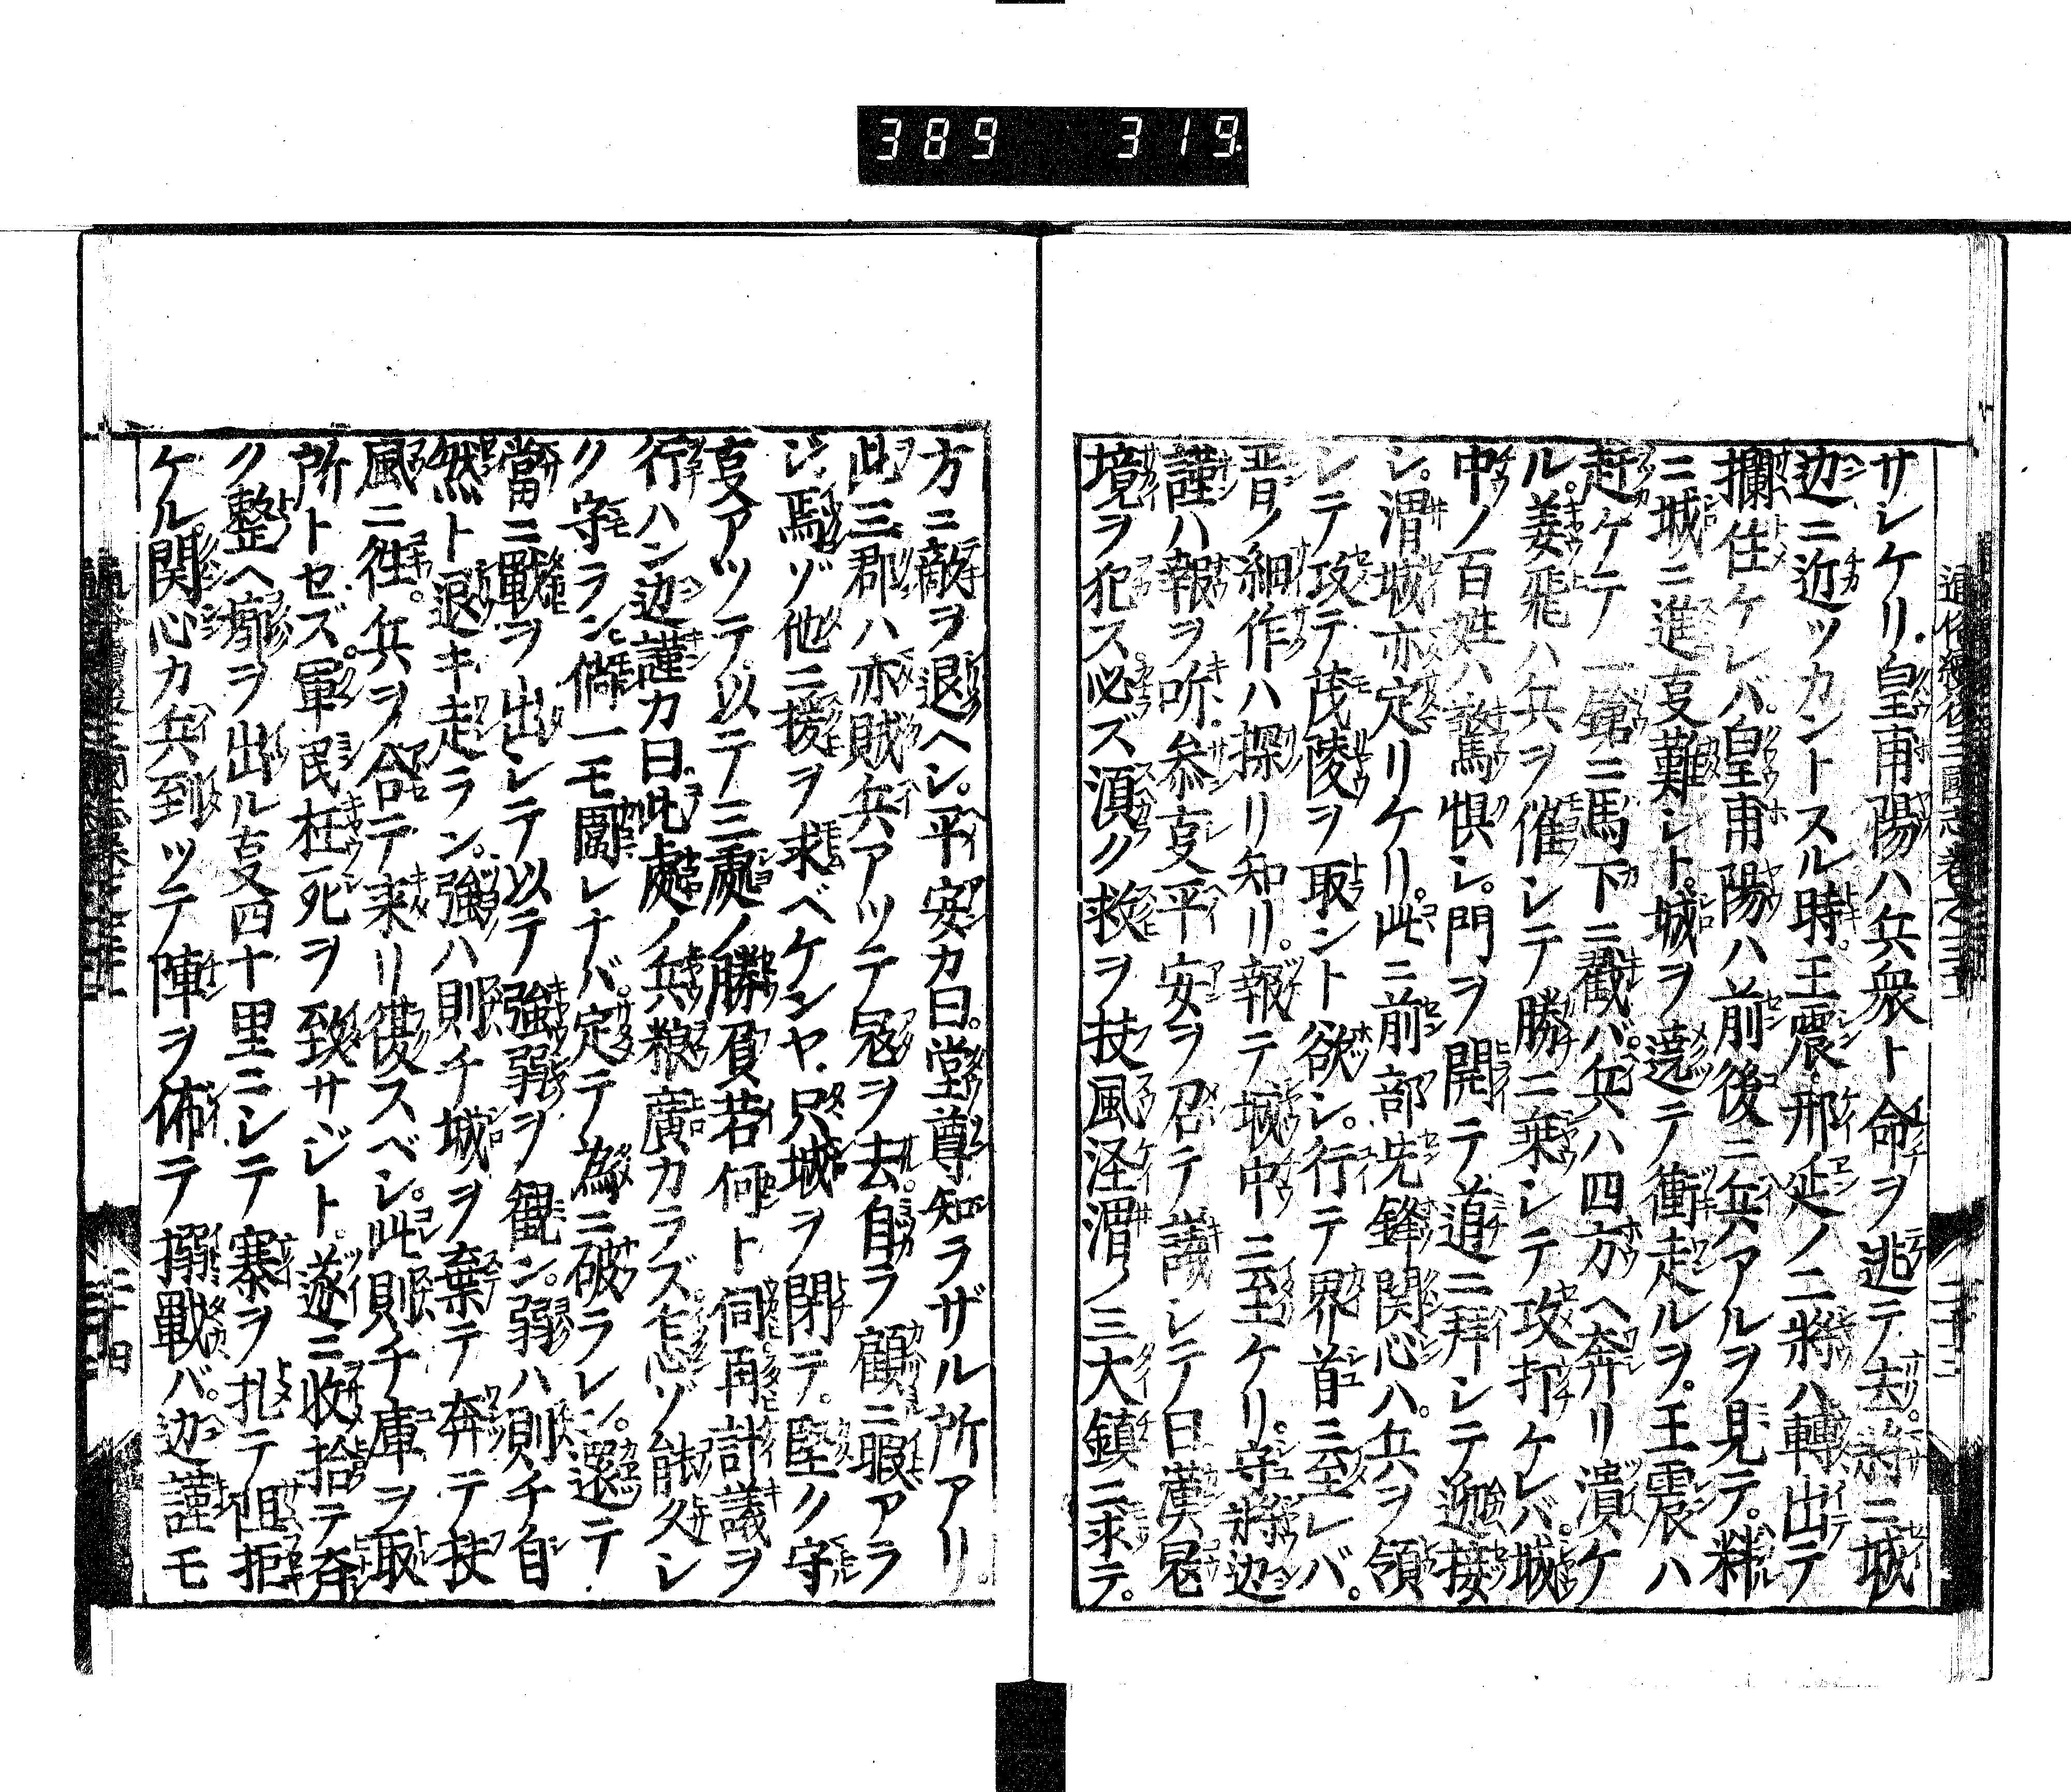 389 319
サレケリ。皇甫陽ハ兵衆ト命ヲ逃テ去。将ニ城
辺ニ近ツカントスル時。王震。邢延ノ二將ハ轉出テ
攔住ケレバ。皇甫陽ハ前後ニ兵アルヲ見テ。料
ニ城ニ進㕝難シト。城ヲ遶テ衝走ルヲ。王震ハ
赶ケテ一鎗ニ馬下ニ戳バ。兵ハ四方ヘ奔リ潰ケ
ル。姜飛ハ兵ヲ催シテ勝ニ乗シテ攻打ケレバ。城
中ノ百姓ハ驚惧シ。門ヲ開テ道ニ拜シテ迎接
シ。渭城亦定リケリ。此ニ前部先鋒関心ハ。兵ヲ領
シテ攻テ茂陵ヲ取ント欲シ。行テ界首ニ至レバ。
晋ノ細作ハ探リ知リ。報テ城中ニ至ケリ。守將辺
謹ハ報ヲ听。参㕝平安ヲ召テ議シテノ曰。漢冦
境ヲ犯ス。必ズ湏ク救ヲ扶風涇渭ノ三大鎮ニ求テ。
方ニ敵ヲ退ヘシ。平安カ曰。堂尊知ラザル所アリ。
此三郡ハ亦賊兵アツテ冦ヲ去。自ラ顧ニ暇アラ
ジ。焉ゾ他ニ援ヲ求ベケンヤ。只城ヲ閉テ。堅ク守
㕝アツテ。以テ三處ノ勝負若何ト伺。再計議ヲ
行ハン。辺謹カ曰。此處ノ兵粮廣カラズ。怎ゾ能久シ
ク守ラン。倘一モ闘レナバ。定テ為ニ破ラレン。還テ
當ニ戰ヲ出シテ以テ強弱ヲ観ン。弱ハ則チ自
然ト退キ走ラン。強ハ則チ城ヲ棄テ奔テ扶
風ニ徃。兵ヲ合テ来リ復スベシ。此則チ庫ヲ取
所トセズ。軍民枉死ヲ致サジト。遂ニ收拾テ斉
ク整ヘ廓ヲ出ル㕝四十里ニシテ寨ヲ扎テ俎拒
ケル。関心カ兵到ツテ陣ヲ佈テ搦戰バ。辺謹モ